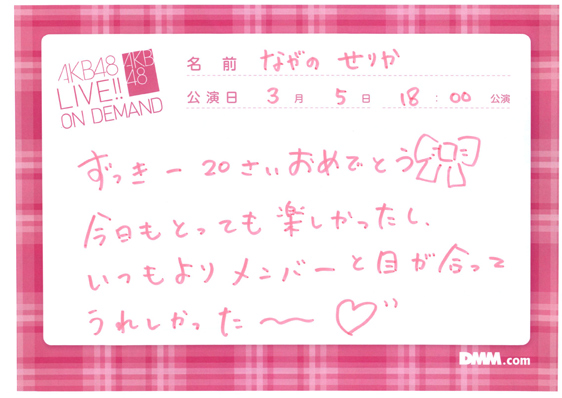 AKB48
LIVE!!
ON DEMAND
AKB
48
名前 ながの せりか
公演日 3月 5日 18:00 公演
ずっきー20さいおめでとう
今日もとっても楽しかったし、
いつもよりメンバーと目が合って
うれしかった〜♡
DMM.com